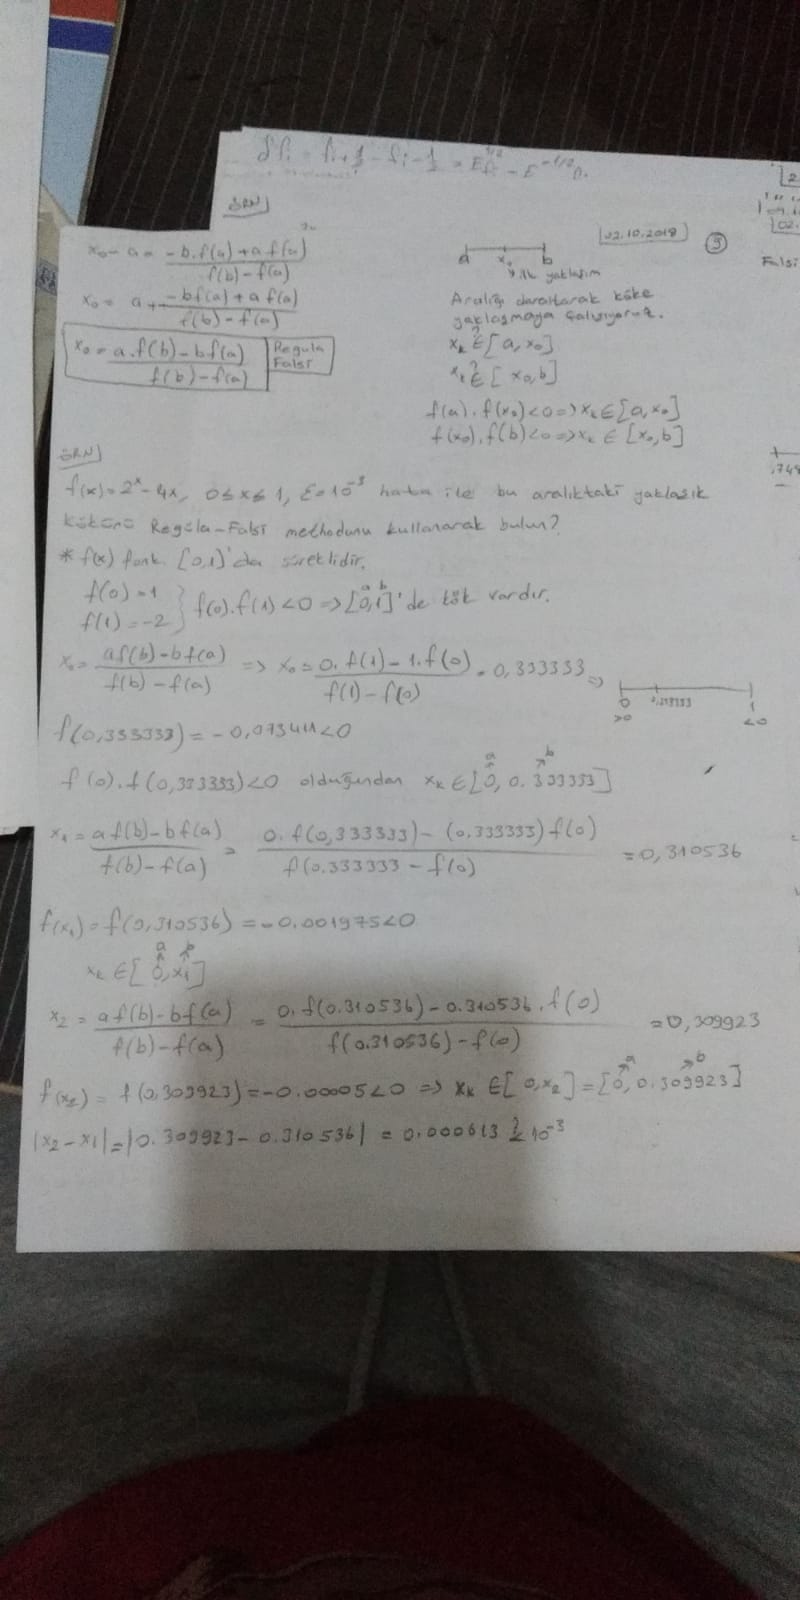 δfi = fi+1/2 - fi-1/2 =
ÖRN
x₀ - a = (-b.f(a)+a f(a)) / (f(b) - f(a))
x₀ = a + (-bf(a)+a f(a)) / (f(b)-f(a))
x₀ = (a.f(b)-bf(a)) / (f(b)-f(a)) Regula Falsi
02.10.2018
5
a x₀ b
ilk yaklaşım
Aralığı daraltarak köke
yaklaşmaya çalışıyoruz.
xₖ ∈? [a, x₀]
xₖ ∈? [x₀, b]
f(a).f(x₀)<0 => xₖ∈[a,x₀]
f(x₀).f(b)<0 => xₖ ∈ [x₀,b]
Falsi
ÖRN
f(x)=2ˣ-4x, 0≤x≤1, ε=10⁻³ hata ile bu aralıktaki yaklaşık
kökünü Regula-Falsi methodunu kullanarak bulun?
* f(x) fonk. [0,1]'da süreklidir.
f(0)=1
f(1)=-2 } f(0).f(1)<0 => [0,1]'de kök vardır.
a b
x₀ = (af(b)-bf(a)) / (f(b)-f(a)) => x₀ = (0.f(1)-1.f(0)) / (f(1)-f(0)) = 0,333333 =>
0 0,333333 1
>0 <0
f(0,333333) = -0,073411<0
f(0).f(0,333333)<0 olduğundan xₖ∈[0, 0.333333]
a b
x₁ = (af(b)-bf(a)) / (f(b)-f(a)) = (0.f(0,333333)-(0.333333)f(0)) / (f(0.333333-f(0)) = 0,310536
f(x₁)=f(0,310536)=-0.001975<0
a b
xₖ∈[0,x₁]
x₂ = (af(b)-bf(a)) / (f(b)-f(a)) = (0.f(0.310536)-0.310536.f(0)) / (f(0.310536)-f(0)) = 0,309923
f(x₂) = f(0,309923)=-0.0005<0 => xₖ ∈[0,x₂]=[0,0.309923]
a b
|x₂-x₁|=|0.309923-0.310536| = 0.000613 ≤? 10⁻³